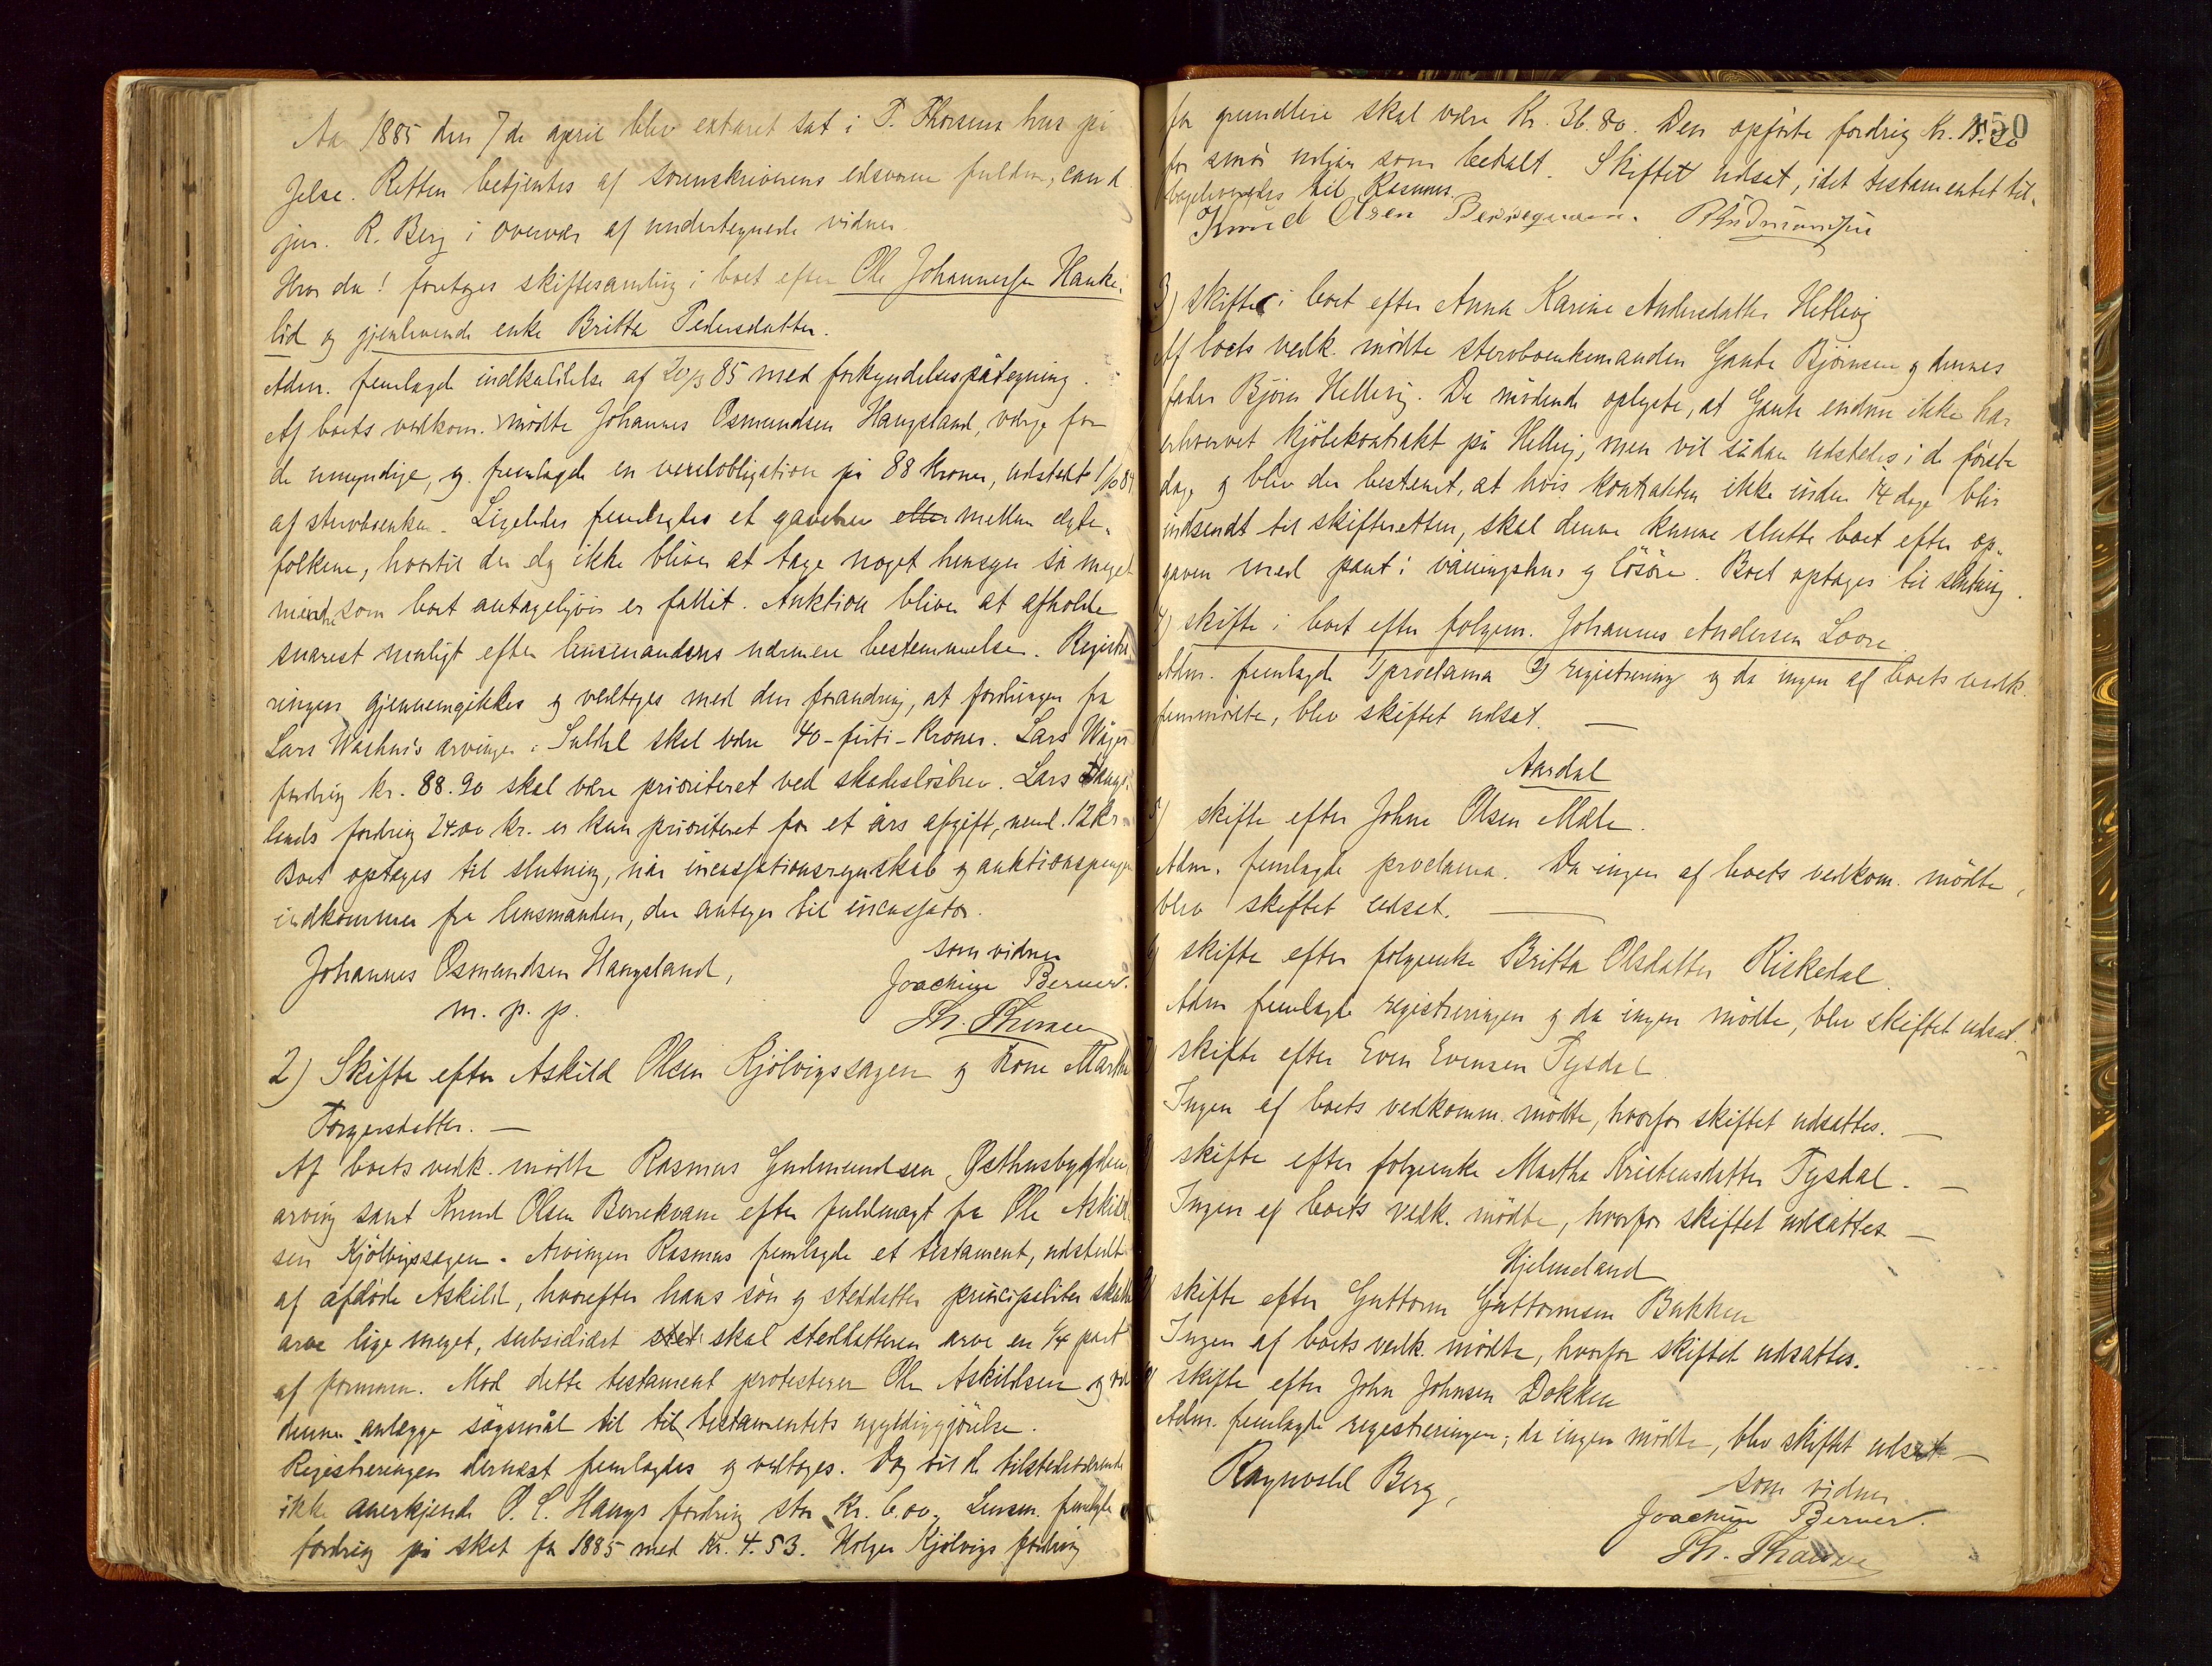 Aa 1885 den 7de april blev extraret sat i T. Thorsens hus på
Jelse. Retten betjentes af sorenskriverens edsvorne fuldm, cand
jur. R. Berg i overvær af undertegnede vidner.
Hvor da! foretoges skiftesamling i boet efter Ole Johannessen Hauke-
lid og gjenlevende enke Britta Pedersdatter.
Adm. fremlagde indkaldelse af 20/3 85 med forkyndelsespåtegning.
Af boets vedkom. mödte Johannes Osmundsen Haugsland, verge for
de umyndige, og fremlagde en vexelobligation på 88 kroner, udstedt 1/10 84
af stervboenken. Ligeledes fremlagdes et gavebrev eller mellem ægte-
folkene, hvortil der dog ikke bliver at tage noget hensyn så meget
mindre som boet antageligvis er fallit. Auktion bliver at afholde
snarest muligt efter lensmandens nærmere bestemmelse. Registre-
ringen gjennemgikkes og vedtoges med den forandring, at fordringen fra
Lars arvinger i Suldal skal være 40-firti-Kroner. Lars Våges
fordring kr. 88.90 skal være prioriteret ved skadeslösbrev. Lars Haugs-
lands fordring 24.00 kr. er kun prioriteret for et års afgift, neml. 12 Kr.
Boet optoges til slutning, når incassationsregnskab og auktionspenge
indkommer fra lensmanden, der antoges til incassator.
Johannes Osmundsen Haugsland,
m. p. p.
som vidner
Joachim Berner.
Th. Thorsen
2) Skifte efter Askild Olsen Kjölvigssagen og kone Martha
Torgersdatter. —
Af boets vedk. mödte Rasmus Gudmundsen Østhusbygden,
arving samt Knud Olsen Berrekvam efter fuldmagt fra Ole Askild-
sen Kjölvigssagen. Arvingen Rasmus fremlagde et testament, udstedt
af afdöde Askild, hvorefter hans sön og steddatter principaliter skulde
arve lige meget, subsidiært sted skal steddatteren arve en 1/4 part
af formuen. Mod dette testament protesterer Ole Askildsen og vil
denne anlægge sögsmål til til testamentets ugyldiggjörelse.
Registreringen dernæst fremlagdes og vedtoges. Dog vil de tilstedeværende
ikke anerkjende O. L. Haugs fordring stor Kr. 6.00. Lensm. fremlagde
fordring på skat for 1885 med Kr. 4.53. Holger Kjölvigs fordring
for grundleie skal være Kr. 36.80. Den opförte fordring Kr.
for smör udgår som betalt. Skiftet udsat, idet testamentet til-
bageleveredes til Rasmus.
Knud Olsen Berreqvam. RGudmundsen
150
3) skifte i boet efter Anna Karine Andersdatter Hetlevig
Af boets vedk. mödte stervboenkemanden Gaute Björnsen og dennes
fader Björn Hetlevig. De mödende oplyste, at Gaute endnu ikke har
erhvervet kjöbekontrakt på Hetlevig, men vil sådan udstedes i de förste
dage og blev der bestemt, at hvis kontrakten ikke inden 14 dage blir
indsendt til skifteretten, skal denne kunne slutte boet efter op-
gaven med pant i våningshus og lösöre. Boet optages til slutning.
4) skifte i boet efter folgem. Johannes Andersen Loore.
Adm. fremlagde 1) proclama 2) registrering og da ingen af boets vedk.
fremmödte, blev skiftet udsat. —
Aardal
5) skifte efter Johne Olsen Mæle.
Adm. fremlagde proclama. Da ingen af boets vedkom. mödte,
blev skiftet udsat. —
6) skifte efter folgeenke Britta Olsdatter Riskedal.
Adm fremlagde registreringen og da ingen mödte, blev skiftet udsat. —
7) skifte efter Even Evensen Tysdal
Ingen af boets vedkomm. mödte, hvorfor skiftet udsattes. —
8) skifte efter folgeenke Martha Kristensdatter Tysdal. —
Ingen af boets vedk. mödte, hvorfor skiftet udsattes —
Hjelmeland
9) skifte efter Guttorm Guttormsen Bakken
Ingen af boets vedk. mödte, hvorfor skiftet udsattes.
10) skifte efter John Johnsen Dokken
Adm. fremlagde registreringen; da ingen mödte, blev skiftet udsat —
Ragnvald Berg,
som vidner
Joachim Berner.
Th. Thorsen